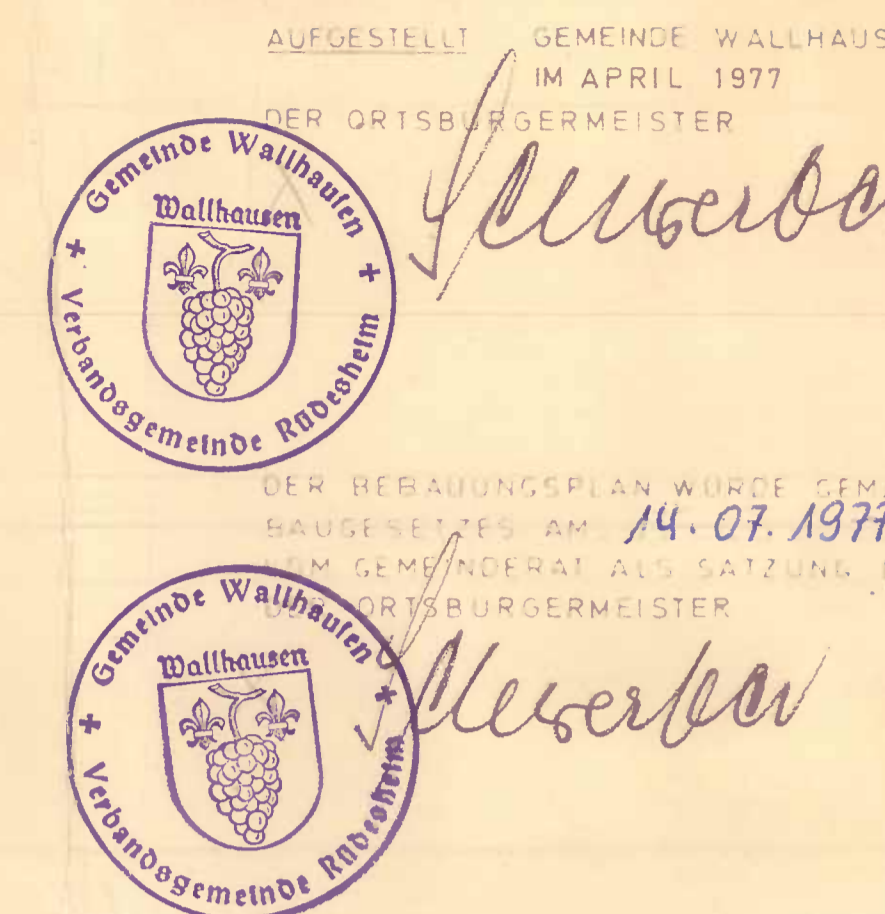 AUFGESTELLT GEMEINDE WALLHAUS
IM APRIL 1977
DER ORTSBÜRGERMEISTER
Gemeinde Wallhausen
Wallhausen
+ Verbandsgemeinde Rüdesheim +
DER BEBAUUNGSPLAN WURDE GEM
BAUGESETZES AM 14.07.1977
VOM GEMEINDERAT ALS SATZUNG
DER ORTSBURGERMEISTER
Gemeinde Wallhausen
Wallhausen
+ Verbandsgemeinde Rüdesheim +